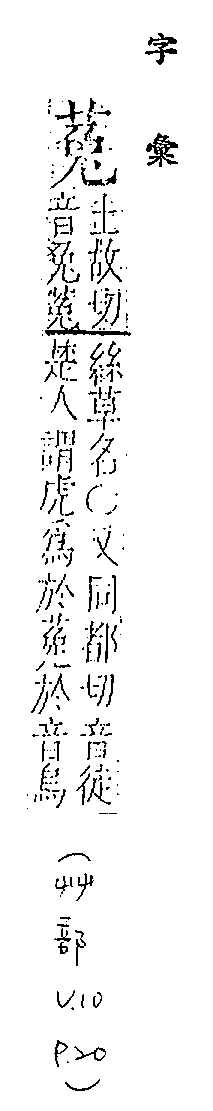 字彙
菟
土故切
音兔菟
絲草名○又同都切音徒
楚人謂虎爲於菟於音烏
(艸部 V.10 P.20)